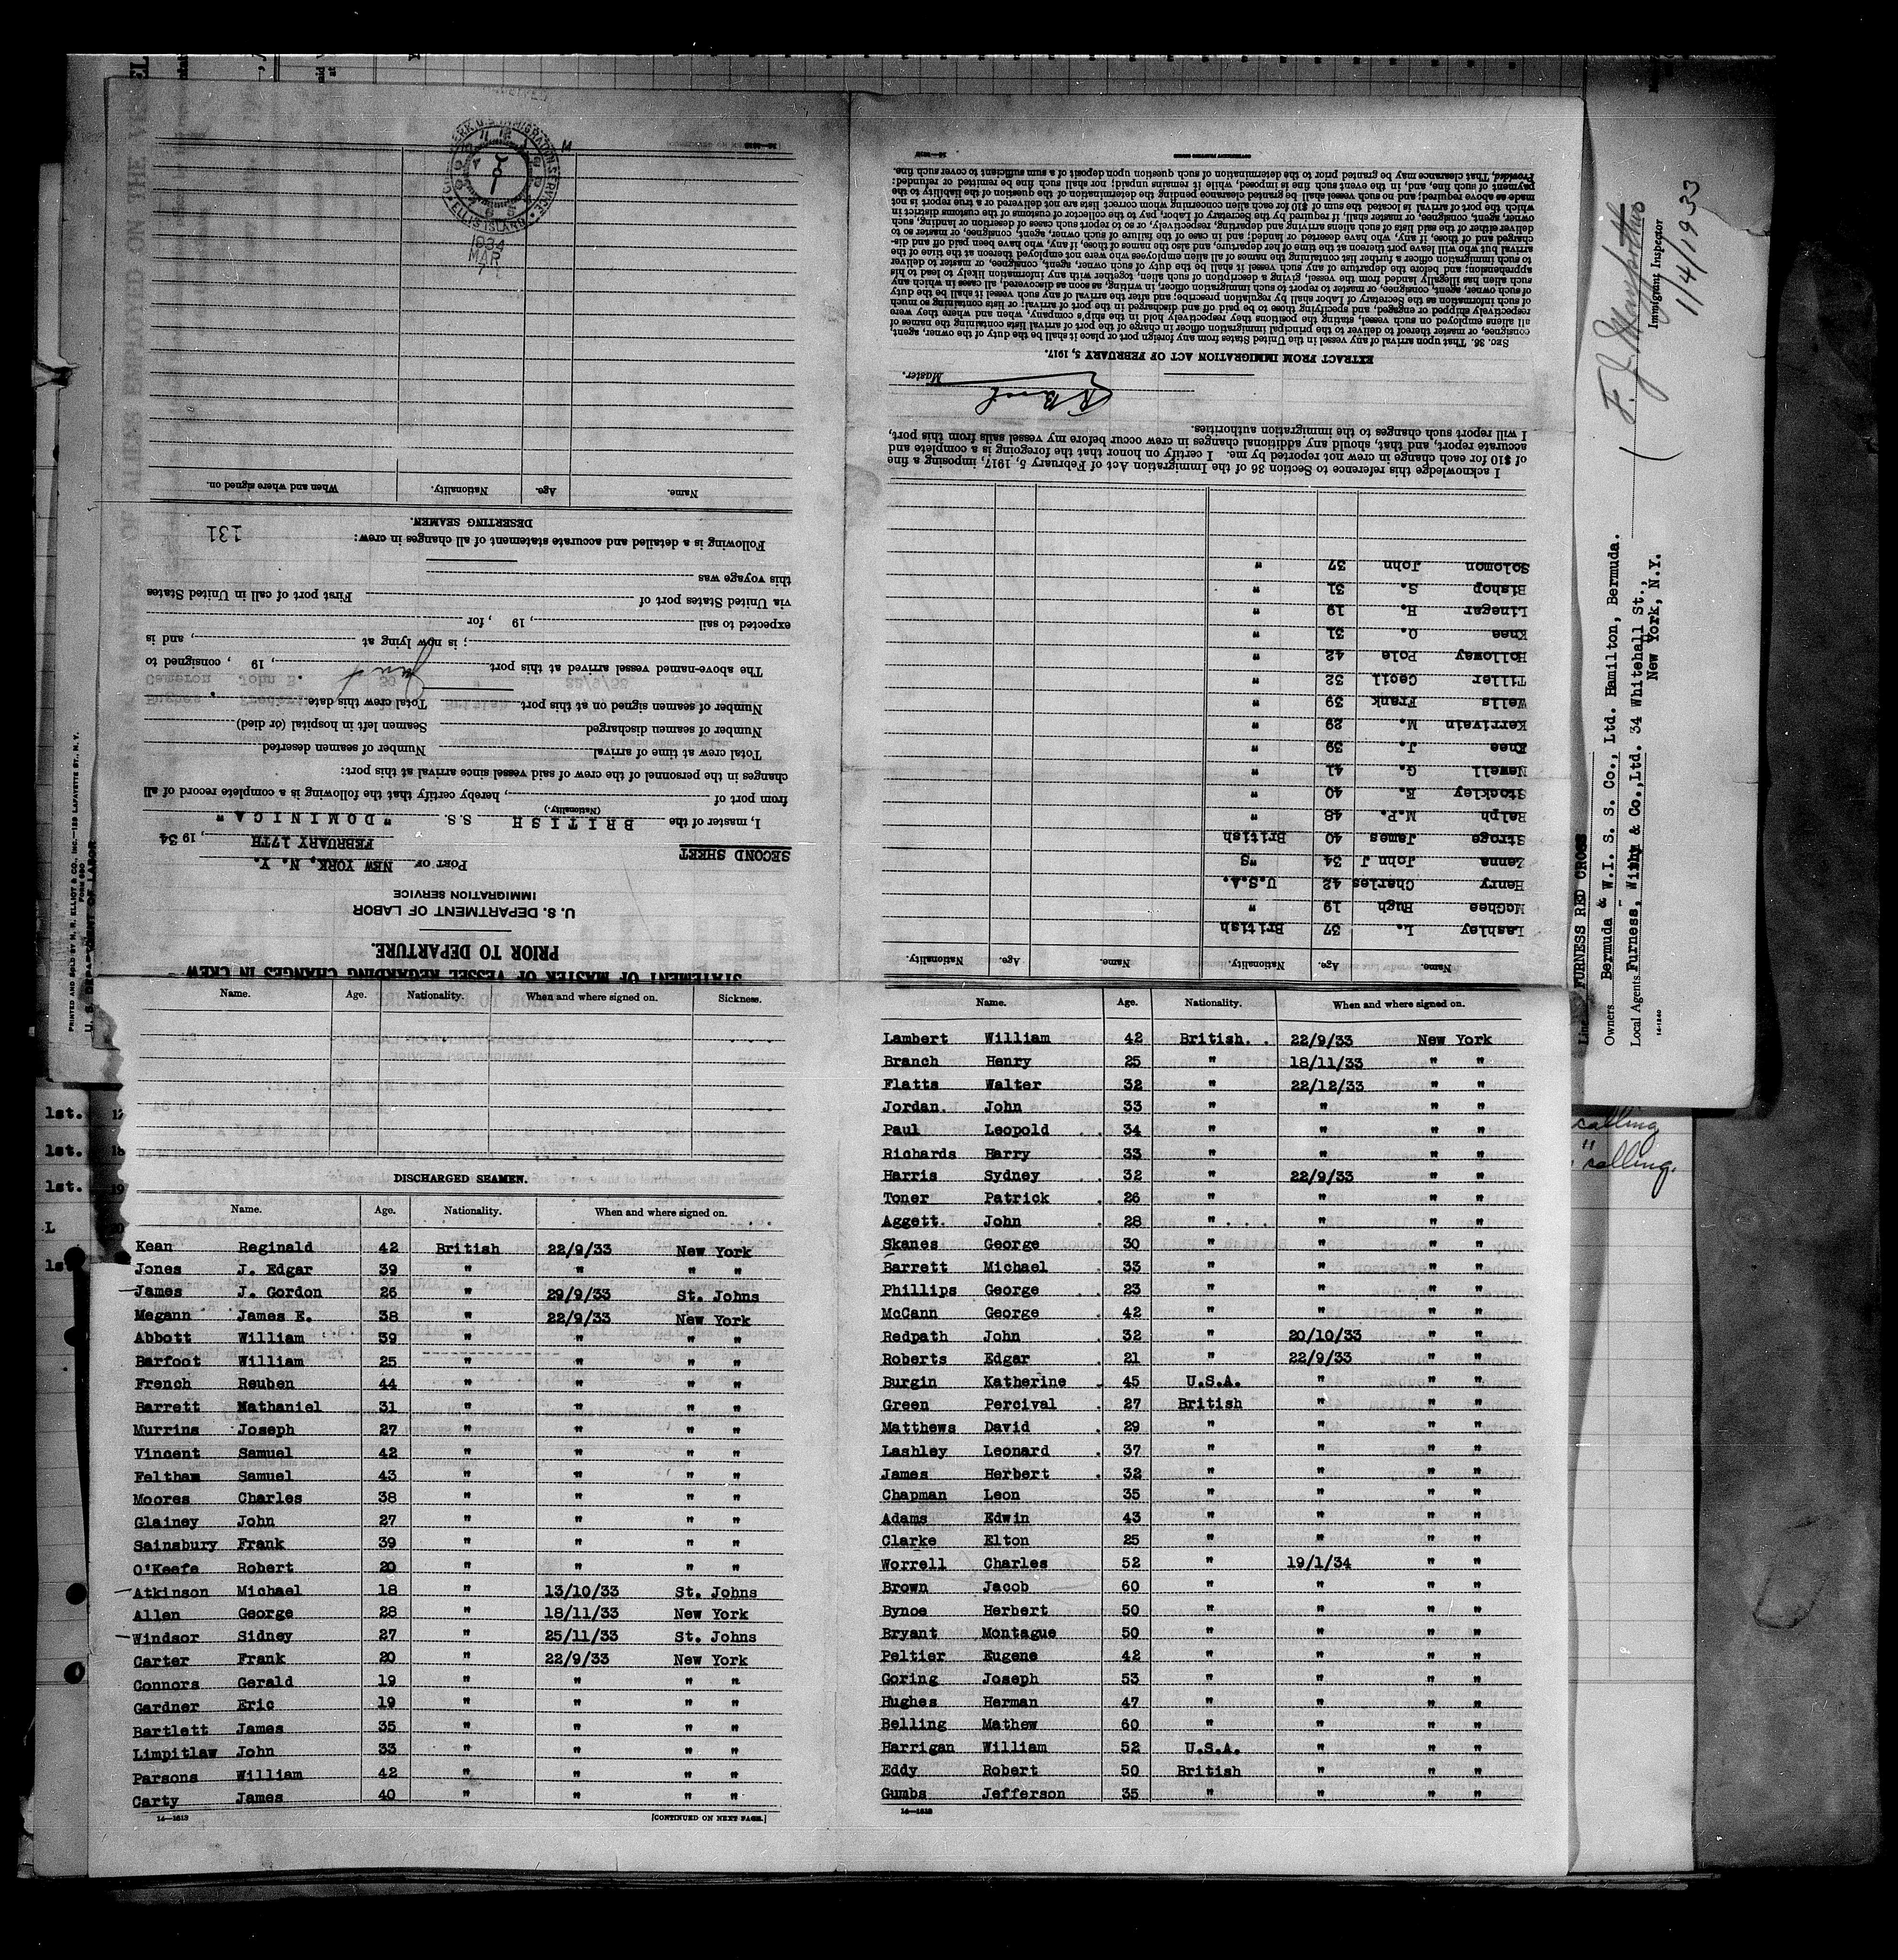 STATEMENT OF MASTER OF VESSEL REGARDING CHANGES IN CREW
PRIOR TO DEPARTURE.
U. S. DEPARTMENT OF LABOR
IMMIGRATION SERVICE
SECOND SHEET
PORT OF NEW YORK, N. Y.
FEBRUARY 17TH, 1934
I, master of the BRITISH S.S. "DOMINICA"
(Nationality.)
from port of , hereby certify that the following is a complete record of all
changes in the personnel of the crew of said vessel since arrival at this port:
Total crew at time of arrival Number of seamen deserted
Number of seamen discharged Seamen left in hospital (or died)
Number of seamen signed on at this port Total crew this date
The above-named vessel arrived at this port , 19 , consigned to
; is now lying at , and is
expected to sail , 19 , for
via United States port of First port of call in United States
this voyage was
Following is a detailed and accurate statement of all changes in crew:
131
DESERTING SEAMEN.
Name. Age. Nationality. When and where signed on.
ELLIS ISLAND
1934
MAR
7
Name. Age. Nationality. When and where signed on. Sickness.
DISCHARGED SEAMEN.
Name. Age. Nationality. When and where signed on.
Kean Reginald 42 British 22/9/33 New York
Jones J. Edgar 39 " " " "
James J. Gordon 26 " 29/9/33 St. Johns
Megann James E. 38 " 22/9/33 New York
Abbott William 39 " " " "
Barfoot William 25 " " " "
French Reuben 44 " " " "
Barrett Nathaniel 31 " " " "
Murrins Joseph 27 " " " "
Vincent Samuel 42 " " " "
Feltham Samuel 43 " " " "
Moores Charles 38 " " " "
Glainey John 27 " " " "
Sainsbury Frank 39 " " " "
O'Keefe Robert 20 " " " "
Atkinson Michael 18 " 13/10/33 St. Johns
Allen George 28 " 18/11/33 New York
Windsor Sidney 27 " 25/11/33 St. Johns
Carter Frank 20 " 22/9/33 New York
Connors Gerald 19 " " " "
Gardner Eric 19 " " " "
Bartlett James 35 " " " "
Limpitlaw John 33 " " " "
Parsons William 42 " " " "
Carty James 40 " " " "
14—1613 [CONTINUED ON NEXT PAGE.]
Name. Age. Nationality. When and where signed on.
Lambert William 42 British. 22/9/33 New York
Branch Henry 25 " 18/11/33 " "
Flatts Walter 32 " 22/12/33 " "
Jordan. John 33 " " " "
Paul Leopold 34 " " " "
Richards Harry 33 " " " "
Harris Sydney 32 " 22/9/33 " "
Toner Patrick 26 " " " "
Aggett John 28 " " " "
Skanes George 30 " " " "
Barrett Michael 33 " " " "
Phillips George 23 " " " "
McCann George 42 " " " "
Redpath John 32 " 20/10/33 " "
Roberts Edgar 21 " 22/9/33 " "
Burgin Katherine 45 U.S.A. " " "
Green Percival 27 British " " "
Matthews David 29 " " " "
Lashley Leonard 37 " " " "
James Herbert 32 " " " "
Chapman Leon 35 " " " "
Adams Edwin 43 " " " "
Clarke Elton 25 " " " "
Worrell Charles 52 " 19/1/34 " "
Brown Jacob 60 " " " "
Bynoe Herbert 50 " " " "
Bryant Montague 50 " " " "
Peltier Eugene 42 " " " "
Goring Joseph 53 " " " "
Hughes Herman 47 " " " "
Belling Mathew 60 " " " "
Harrigan William 52 U.S.A. " " "
Eddy Robert 50 British " " "
Gumbs Jefferson 35 " " " "
Name. Age. Nationality. Name. Age. Nationality.
Lashley L. 37 British
McGhee Hugh 19 "
Henry Charles 42 U.S.A.
Zanna John J 34 "S
Stroge James 40 British
Ralph M.P. 48 "
Stockley E. 40 "
Newell G. 41 "
Knee J. 39 "
Kerrivain M. 29 "
Wells Frank 39 "
Tiller Cecil 32 "
Holloway Pole 42 "
Knee O. 31 "
Linegar H. 19 "
Bishop S. 31 "
Solomon John 37 "
I acknowledge this reference to Section 36 of the Immigration Act of February 5, 1917, imposing a fine
of $10 for each change in crew not reported by me. I certify on honor that the foregoing is a complete and
accurate report, and that, should any additional changes in crew occur before my vessel sails from this port,
I will report such changes to the immigration authorities.
Master.
EXTRACT FROM IMMIGRATION ACT OF FEBRUARY 5, 1917.
SEC. 36. That upon arrival of any vessel in the United States from any foreign port or place it shall be the duty of the owner, agent,
consignee, or master thereof to deliver to the principal immigration officer in charge of the port of arrival lists containing the names of
all aliens employed on such vessel, stating the positions they respectively hold in the ship's company, when and where they were
respectively shipped or engaged, and specifying those to be paid off and discharged in the port of arrival; or lists containing so much
of such information as the Secretary of Labor shall by regulation prescribe; and after the arrival of any such vessel it shall be the duty
of such owner, agent, consignee, or master to report to such immigration officer, in writing, as soon as discovered, all cases in which any
such alien has illegally landed from the vessel, giving a description of such alien, together with any information likely to lead to his
apprehension; and before the departure of any such vessel it shall be the duty of such owner, agent, consignee, or master to deliver
to such immigration officer a further list containing the names of all alien employees who were not employed thereon at the time of the
arrival but who will leave port thereon at the time of her departure, and also the names of those, if any, who have been paid off and dis-
charged and of those, if any, who have deserted or landed; and in case of the failure of such owner, agent, consignee, or master so to
deliver either of the said lists of such aliens arriving and departing, respectively, or so to report such cases of desertion or landing, such
owner, agent, consignee, or master shall, if required by the Secretary of Labor, pay to the collector of customs of the customs district in
which the port of arrival is located the sum of $10 for each alien concerning whom correct lists are not delivered or a true report is not
made as above required; and no such vessel shall be granted clearance pending the determination of the question of the liability to the
payment of such fine, and, in the event such fine is imposed, while it remains unpaid; nor shall such fine be remitted or refunded:
Provided, That clearance may be granted prior to the determination of such question upon deposit of a sum sufficient to cover such fine.
Line FURNESS RED CROSS
Owners Bermuda & W.I. S. S. Co., Ltd. Hamilton, Bermuda.
Local Agents Furness, Withy & Co.,Ltd. 34 Whitehall St.,
New York, N.Y.
Immigrant Inspector
1/4/1933
PRINTED AND SOLD BY M. R. ELLIOT & CO., INC.—129 LAFAYETTE ST., N. Y.
FORM 680
U. S. DEPARTMENT OF LABOR
1st. 17
1st. 18
1st. 19
L
1st
calling
" calling.